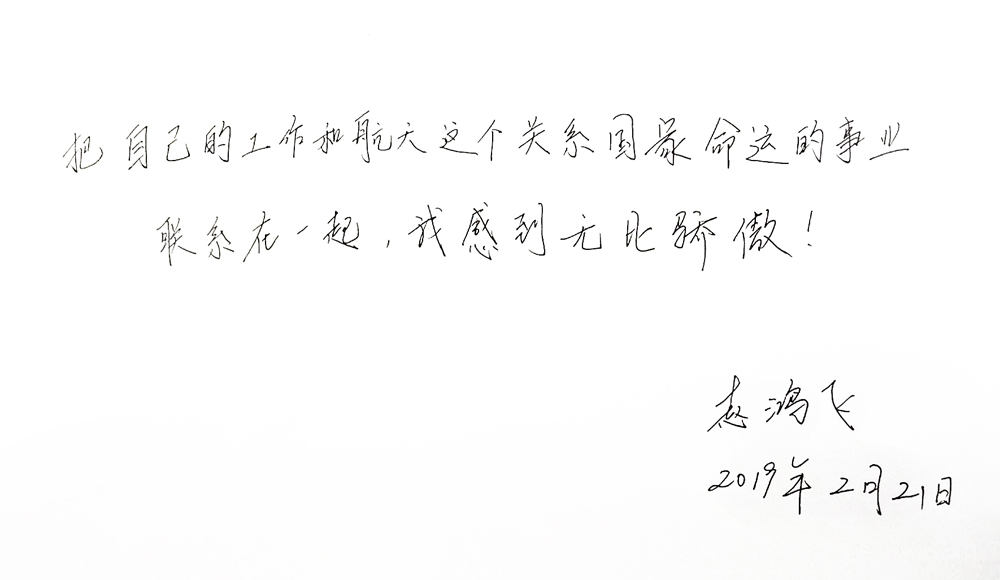 把自己的工作和航天这个关系国家命运的事业
联系在一起,我感到无比骄傲!
鸿飞
2019年2月21日